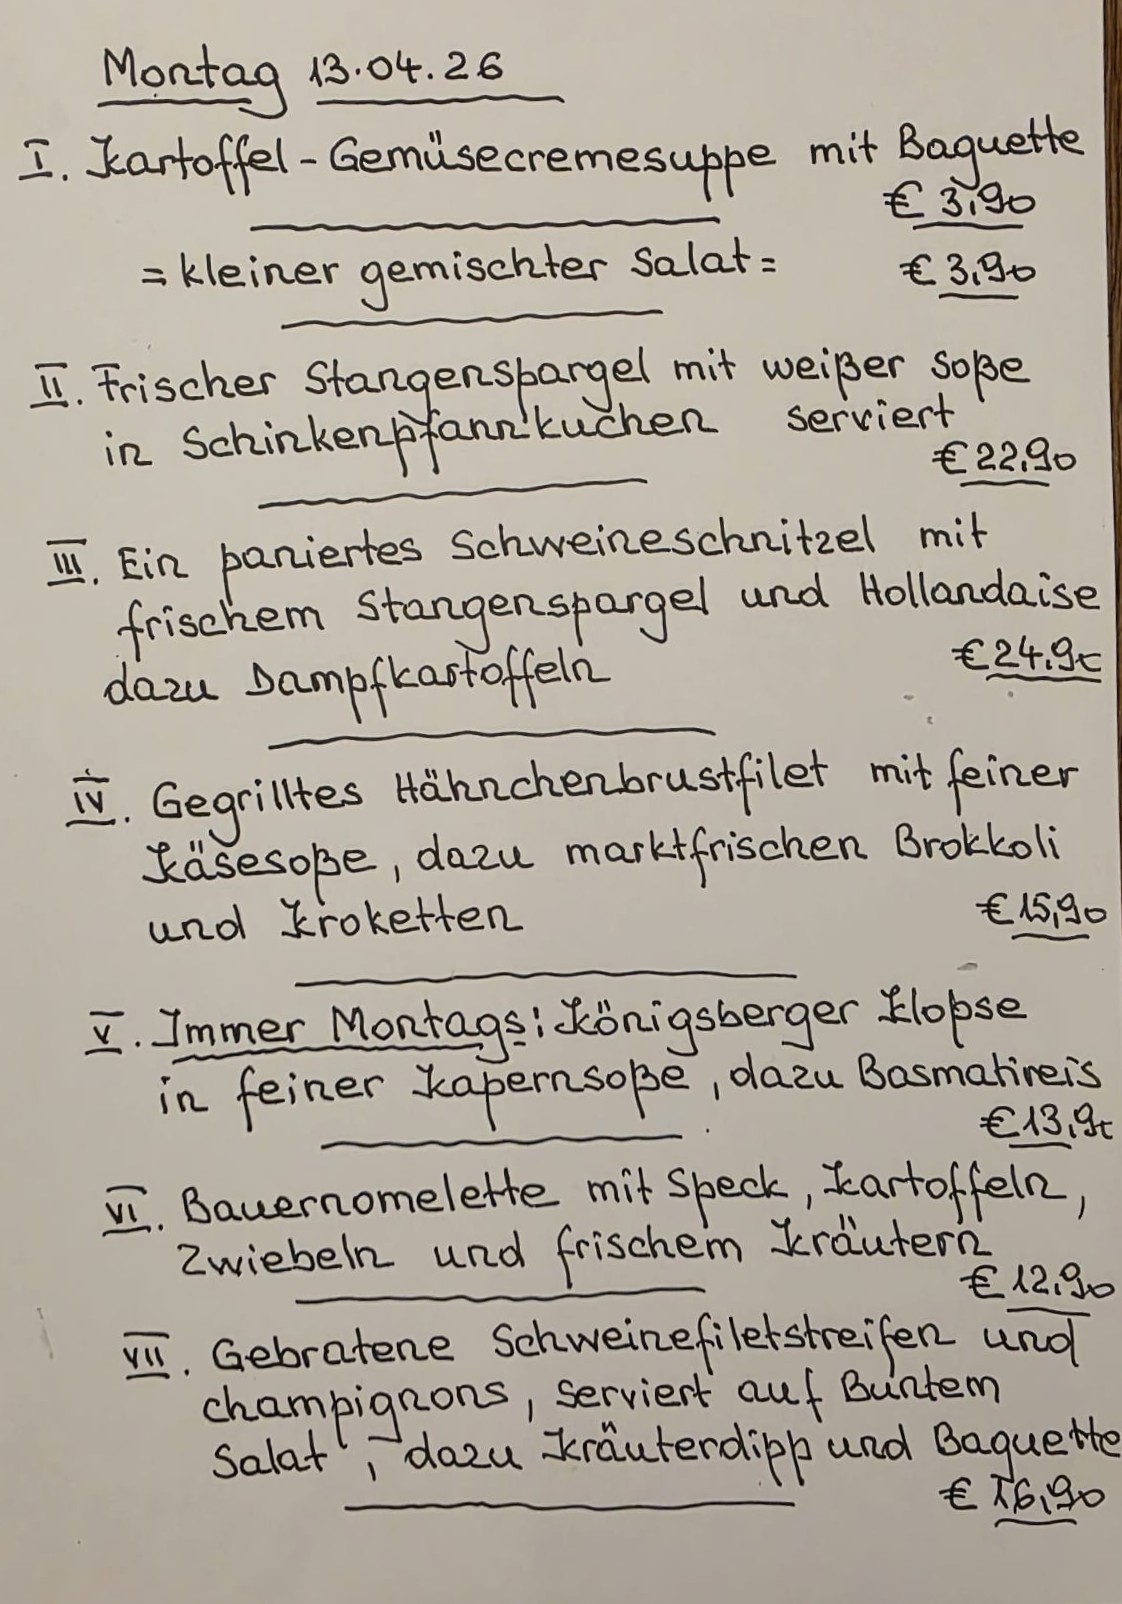 Montag 13.04.26
I. Kartoffel-Gemüsecremesuppe mit Baguette
€ 3,90
= kleiner gemischter Salat = € 3,90
II. Frischer Stangenspargel mit weißer Soße
in Schinkenpfannkuchen serviert
€ 22,90
III. Ein paniertes Schweineschnitzel mit
frischem Stangenspargel und Hollandaise
dazu Dampfkartoffeln € 24,90
IV. Gegrilltes Hähnchenbrustfilet mit feiner
Käsesoße, dazu marktfrischen Brokkoli
und Kroketten € 15,90
V. Immer Montags: Königsberger Klopse
in feiner Kapernsoße, dazu Basmatireis
€ 13,90
VI. Bauernomelette mit Speck, Kartoffeln,
Zwiebeln und frischem Kräutern
€ 12,90
VII. Gebratene Schweinefiletstreifen und
champignons, serviert auf Buntem
Salat, dazu Kräuterdipp und Baguette
€ 16,90